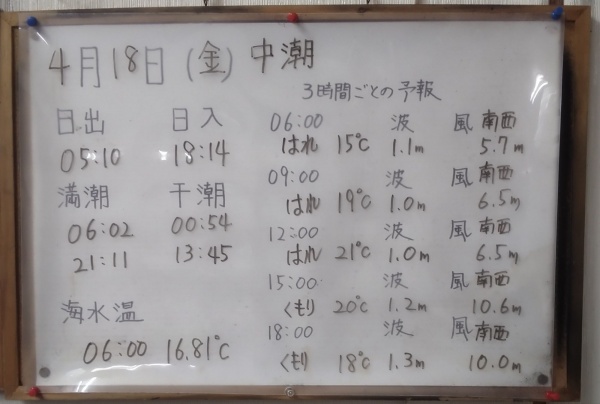 4月18日(金) 中潮
日出 日入
05:10 18:14
満潮 干潮
06:02 00:54
21:11 13:45
海水温
06:00 16.81℃
3時間ごとの予報
06:00 波 風 南西
はれ 15℃ 1.1m 5.7m
09:00 波 風 南西
はれ 19℃ 1.0m 6.5m
12:00 波 風 南西
はれ 21℃ 1.0m 6.5m
15:00 波 風 南西
くもり 20℃ 1.2m 10.6m
18:00 波 風 南西
くもり 18℃ 1.3m 10.0m